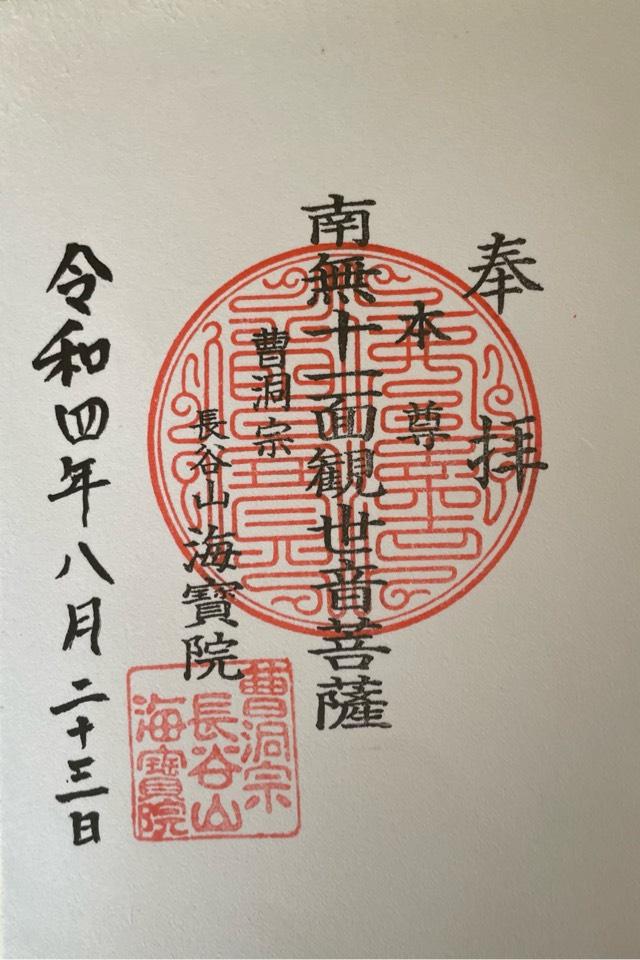 奉拝
本尊
南無十一面観世音菩薩
曹洞宗
長谷山海寳院
令和四年八月二十三日
曹洞宗
長谷山
海寳院